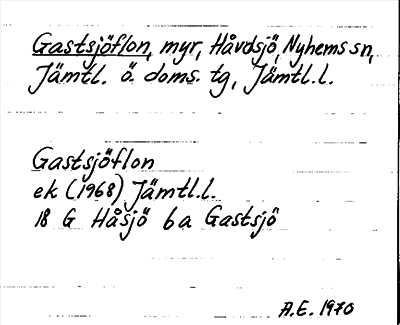 Gastsjöflon, myr, Håvdsjö, Nyhems sn,
Jämtl. ö. doms. tg, Jämtl.l.
Gastsjöflon
ek (1968) Jämtl.l.
18 G Håsjö 6a Gastsjö
A.E. 1970